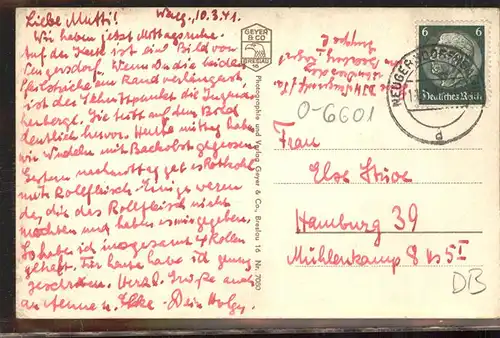 Liebe Mutti! 10.3.41.
Wir haben jetzt Mittagsruhe.
Auf der Seite ist ein Bild von
Lengersdorf. Wenn Du die beiden
Pfeilstriche am Rand verlängerst,
ist der Schnittpunkt die Jugend-
herberge. Sie tritt auf dem Bild
deutlich hervor. Heute mittag haben
wir Nudeln mit Backobst gegessen.
Gestern nachmittag gab es Rotkohl
mit Rollfleisch. Einige waren
da, die das Rollfleisch nicht
mochten und haben es mir gegeben.
So habe ich insgesamt 4 Rollen
gehabt. Für heute habe ich genug
geschrieben. Herzl. Grüße auch
an Aenne u. Elke. Dein Holger.
GEYER
& CO
BRESLAU
16
Photographie und Verlag Geyer & Co., Breslau 16 Nr. 7050
6 6
Deutsches Reich
d
0-6601
Frau
Else Stüve
Hamburg 39
Mühlenkamp 8 bs 5 I
DB